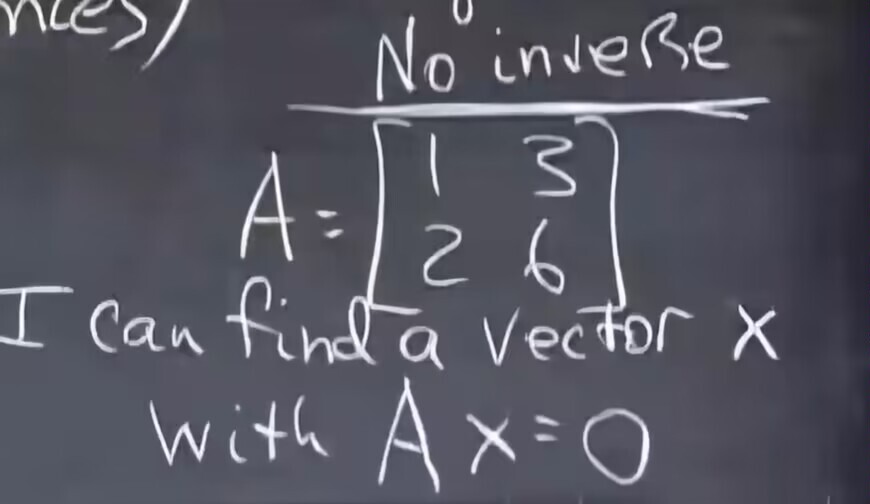 No inverse
A = [1 3
2 6]
I can find a vector x
with Ax = 0